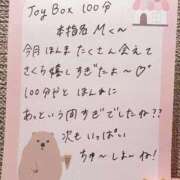 Joy Box 100分
本指名 Mくん〜
今月ほんまたくさん会えて
さくら嬉しすぎたよ〜♡
100分やとほんまに
あっという間すぎでしたね??
次もいっぱい
ちゅ〜しよーね!